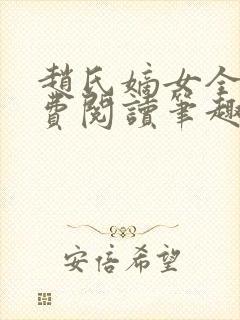 趙氏嫡女全
費閱讀筆趣
安倍希望